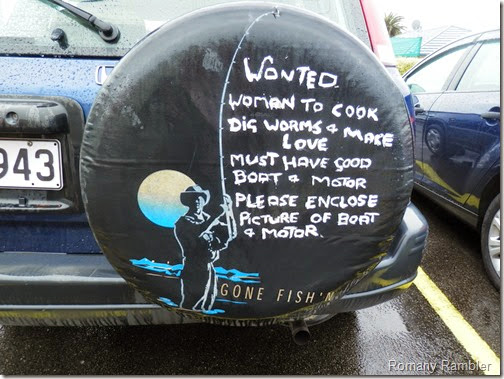 WONTED
WOMAN TO COOK
DIG WORMS & MAKE
LOVE
MUST HAVE GOOD
BOAT & MOTOR
PLEASE ENCLOSE
PICTURE OF BOAT
& MOTOR.
GONE FISH'N
943
Romany Rambler